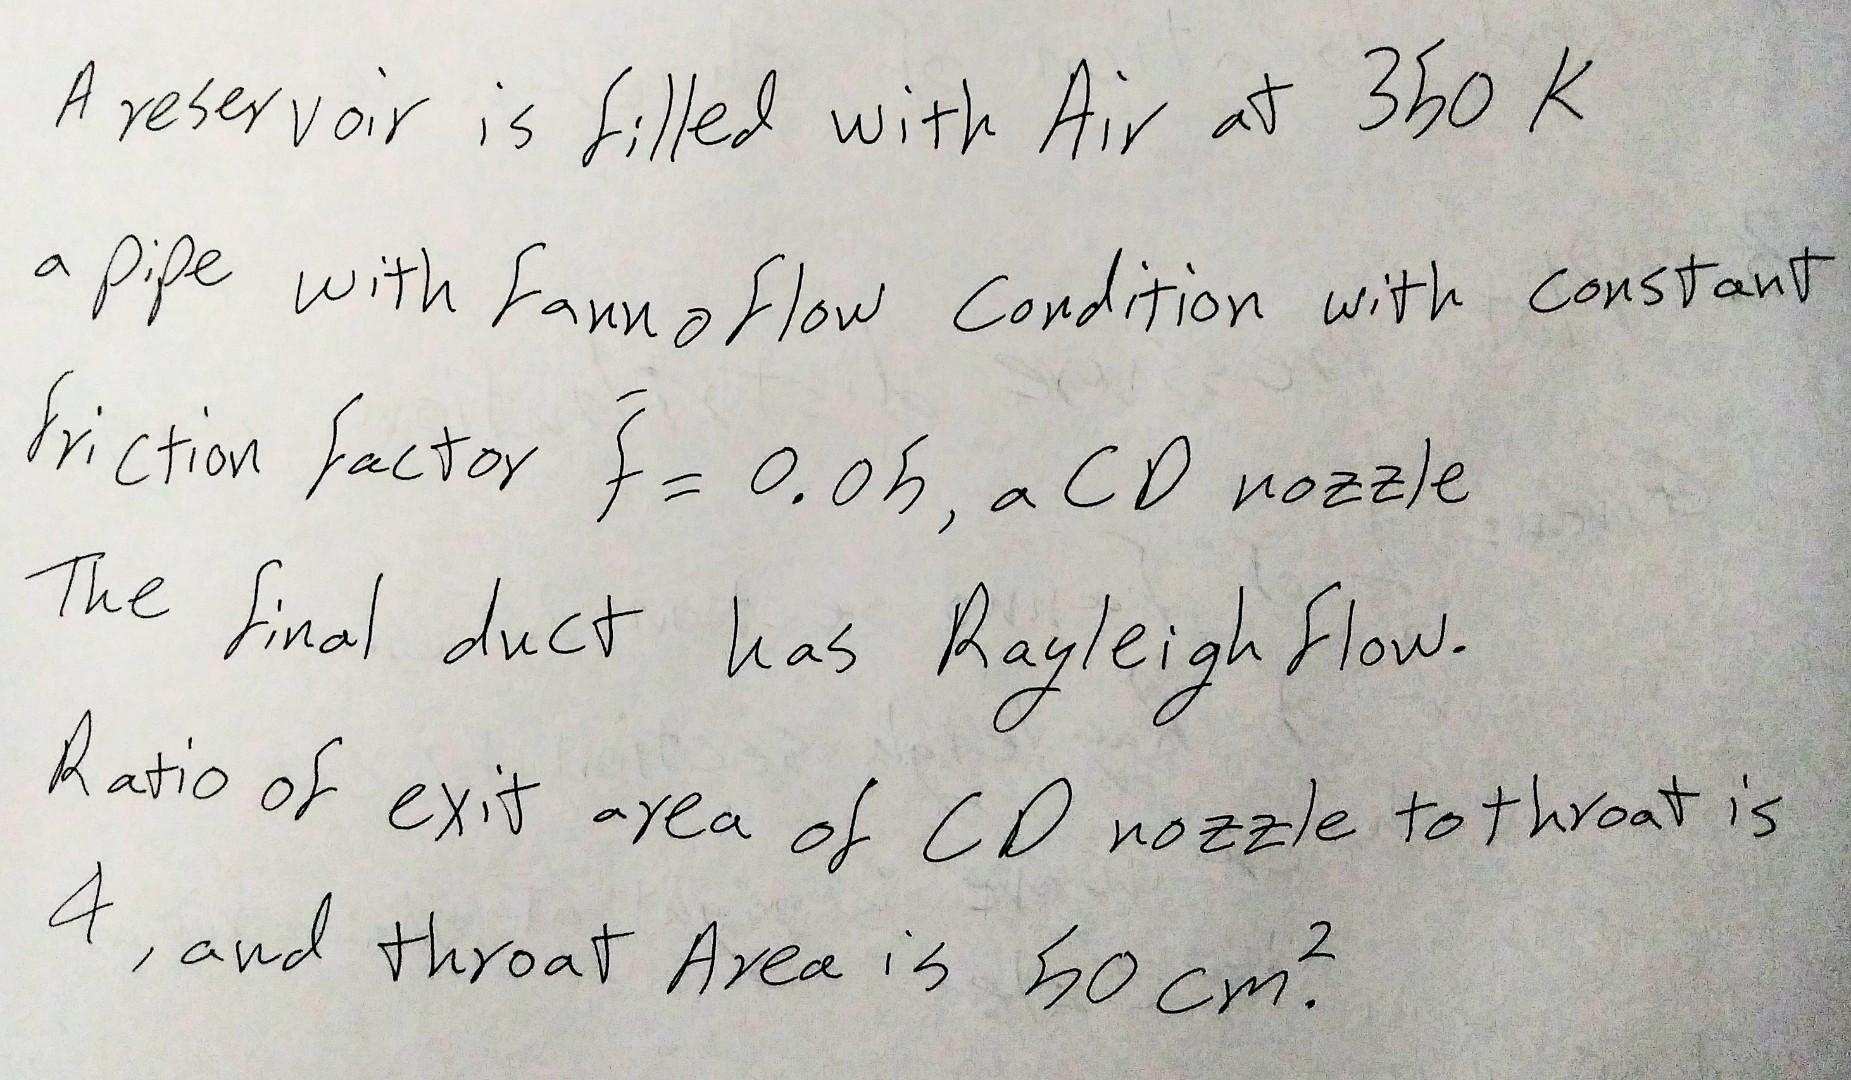 A reservoir is filled with Air at 350 K
a pipe with Fanno flow Condition with constant
friction factor f̄ = 0.05, a CD nozzle
The final duct has Rayleigh flow.
Ratio of exit area of CD nozzle to throat is
4, and throat Area is 50 cm².